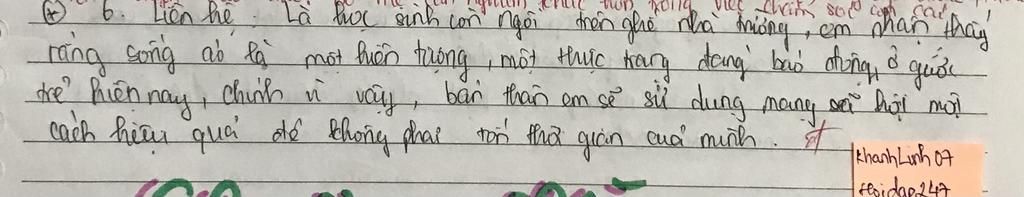 6. Liên hệ: Là học sinh còn ngồi trên ghế nhà trường, em nhận thấy
rằng sống ảo là một hiện tượng, một thực trạng đáng báo động, ở giới
trẻ hiện nay, chính vì vậy, bản thân em sẽ sử dụng mạng xã hội một
cách hiệu quả để không phải tốn thời gian của mình.
KhanhLinh 07